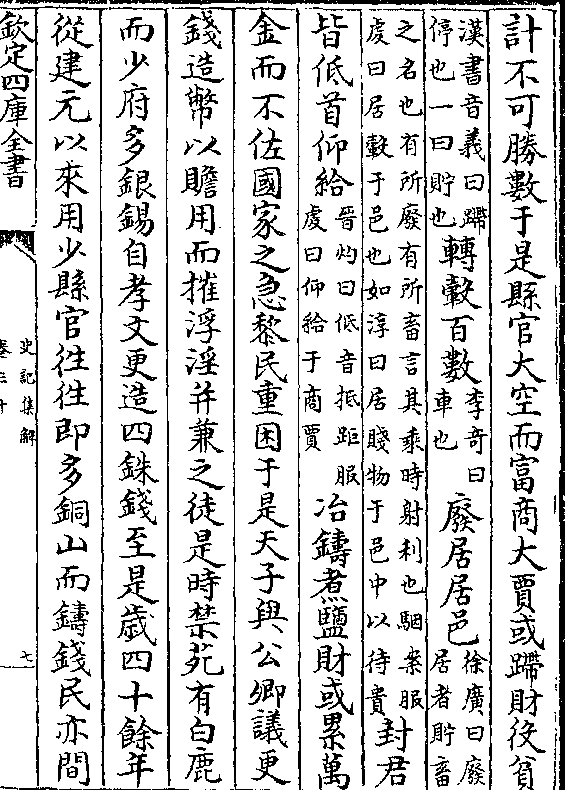 計不可勝數于是縣官大空而富商大賈或蹛財役貧
漢書音義曰蹛
停也一曰貯也
轉轂百數
李奇曰
車也
廢居居邑
徐廣曰廢
居者貯畜
之名也有所廢有所畜言其乘時射利也駰案服
虔曰居轂于邑也如淳曰居賤物于邑中以待貴
封君
皆低首仰給
晉灼曰低音抵距服
虔曰仰給于商賈
冶鑄煮鹽財或累萬
金而不佐國家之急黎民重困于是天子與公卿議更
錢造幣以贍用而摧浮淫并兼之徒是時禁苑有白鹿
而少府多銀錫自孝文更造四銖錢至是歲四十餘年
從建元以來用少縣官往往即多銅山而鑄錢民亦間
欽定四庫全書
史記集解
卷三十
七